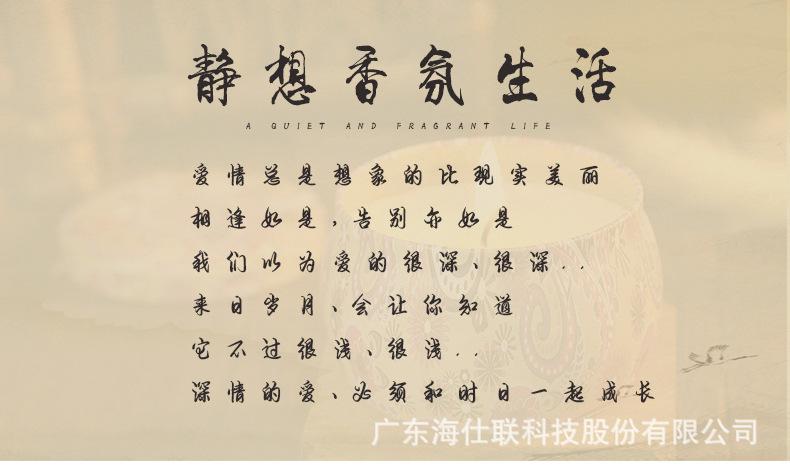 静想香氛生活
A QUIET AND FRAGRANT LIFE
爱情总是想象的比现实美丽
相逢如是,告别亦如是
我们以为爱的很深、很深..
来日岁月、会让你知道
它不过很浅、很浅..
深情的爱、必须和时日一起成长
广东海仕联科技股份有限公司